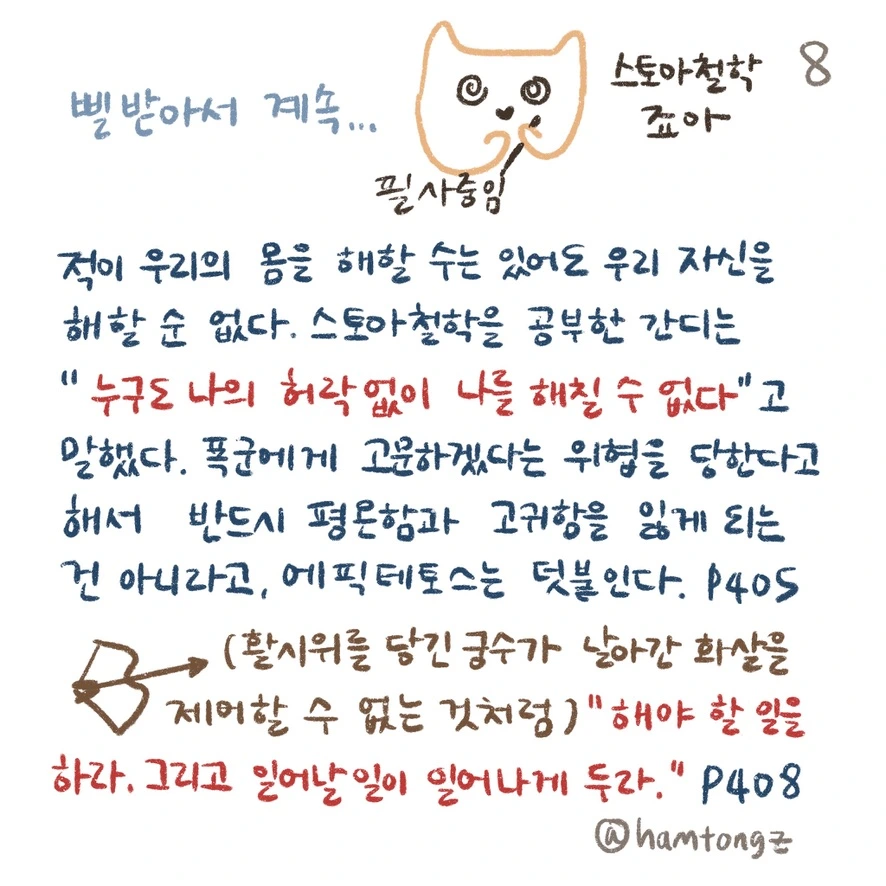 삘받아서 계속...
스토아철학 8
죠아
필사중임
적이 우리의 몸을 해할 수는 있어도 우리 자신을
해할 순 없다. 스토아철학을 공부한 간디는
"누구도 나의 허락없이 나를 해칠 수 없다"고
말했다. 폭군에게 고문하겠다는 위협을 당한다고
해서 반드시 평온함과 고귀함을 잃게 되는
건 아니라고, 에픽테토스는 덧붙인다. P405
(활시위를 당긴 궁수가 날아간 화살을
제어할 수 없는 것처럼) "해야 할 일을
하라. 그리고 일어날 일이 일어나게 두라." P408
@hamtongz